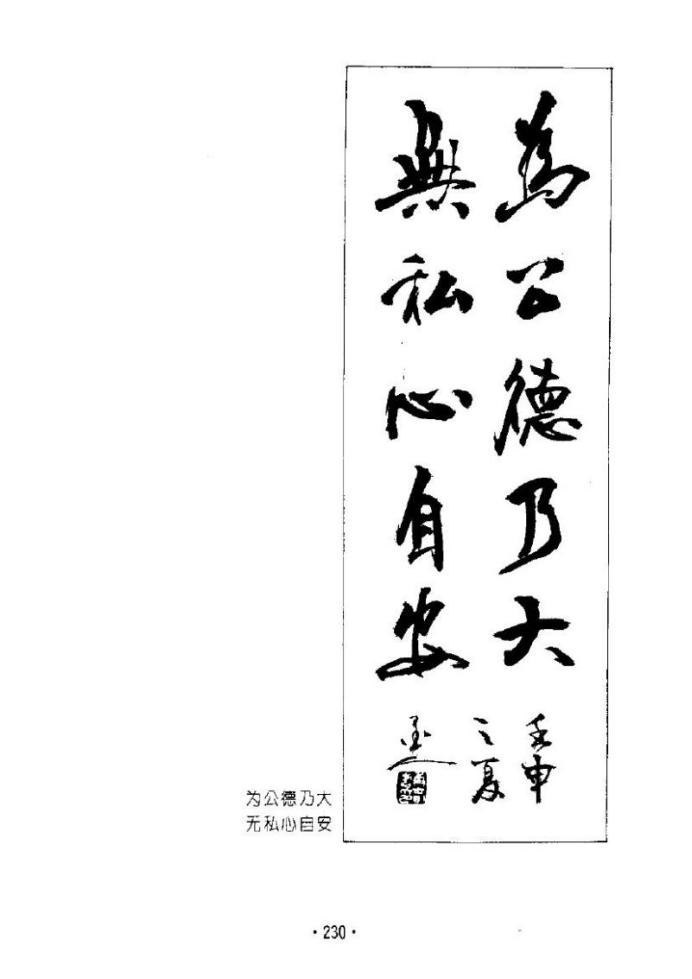 為公德乃大
無私心自安
壬申
之夏
为公德乃大
无私心自安
·230·